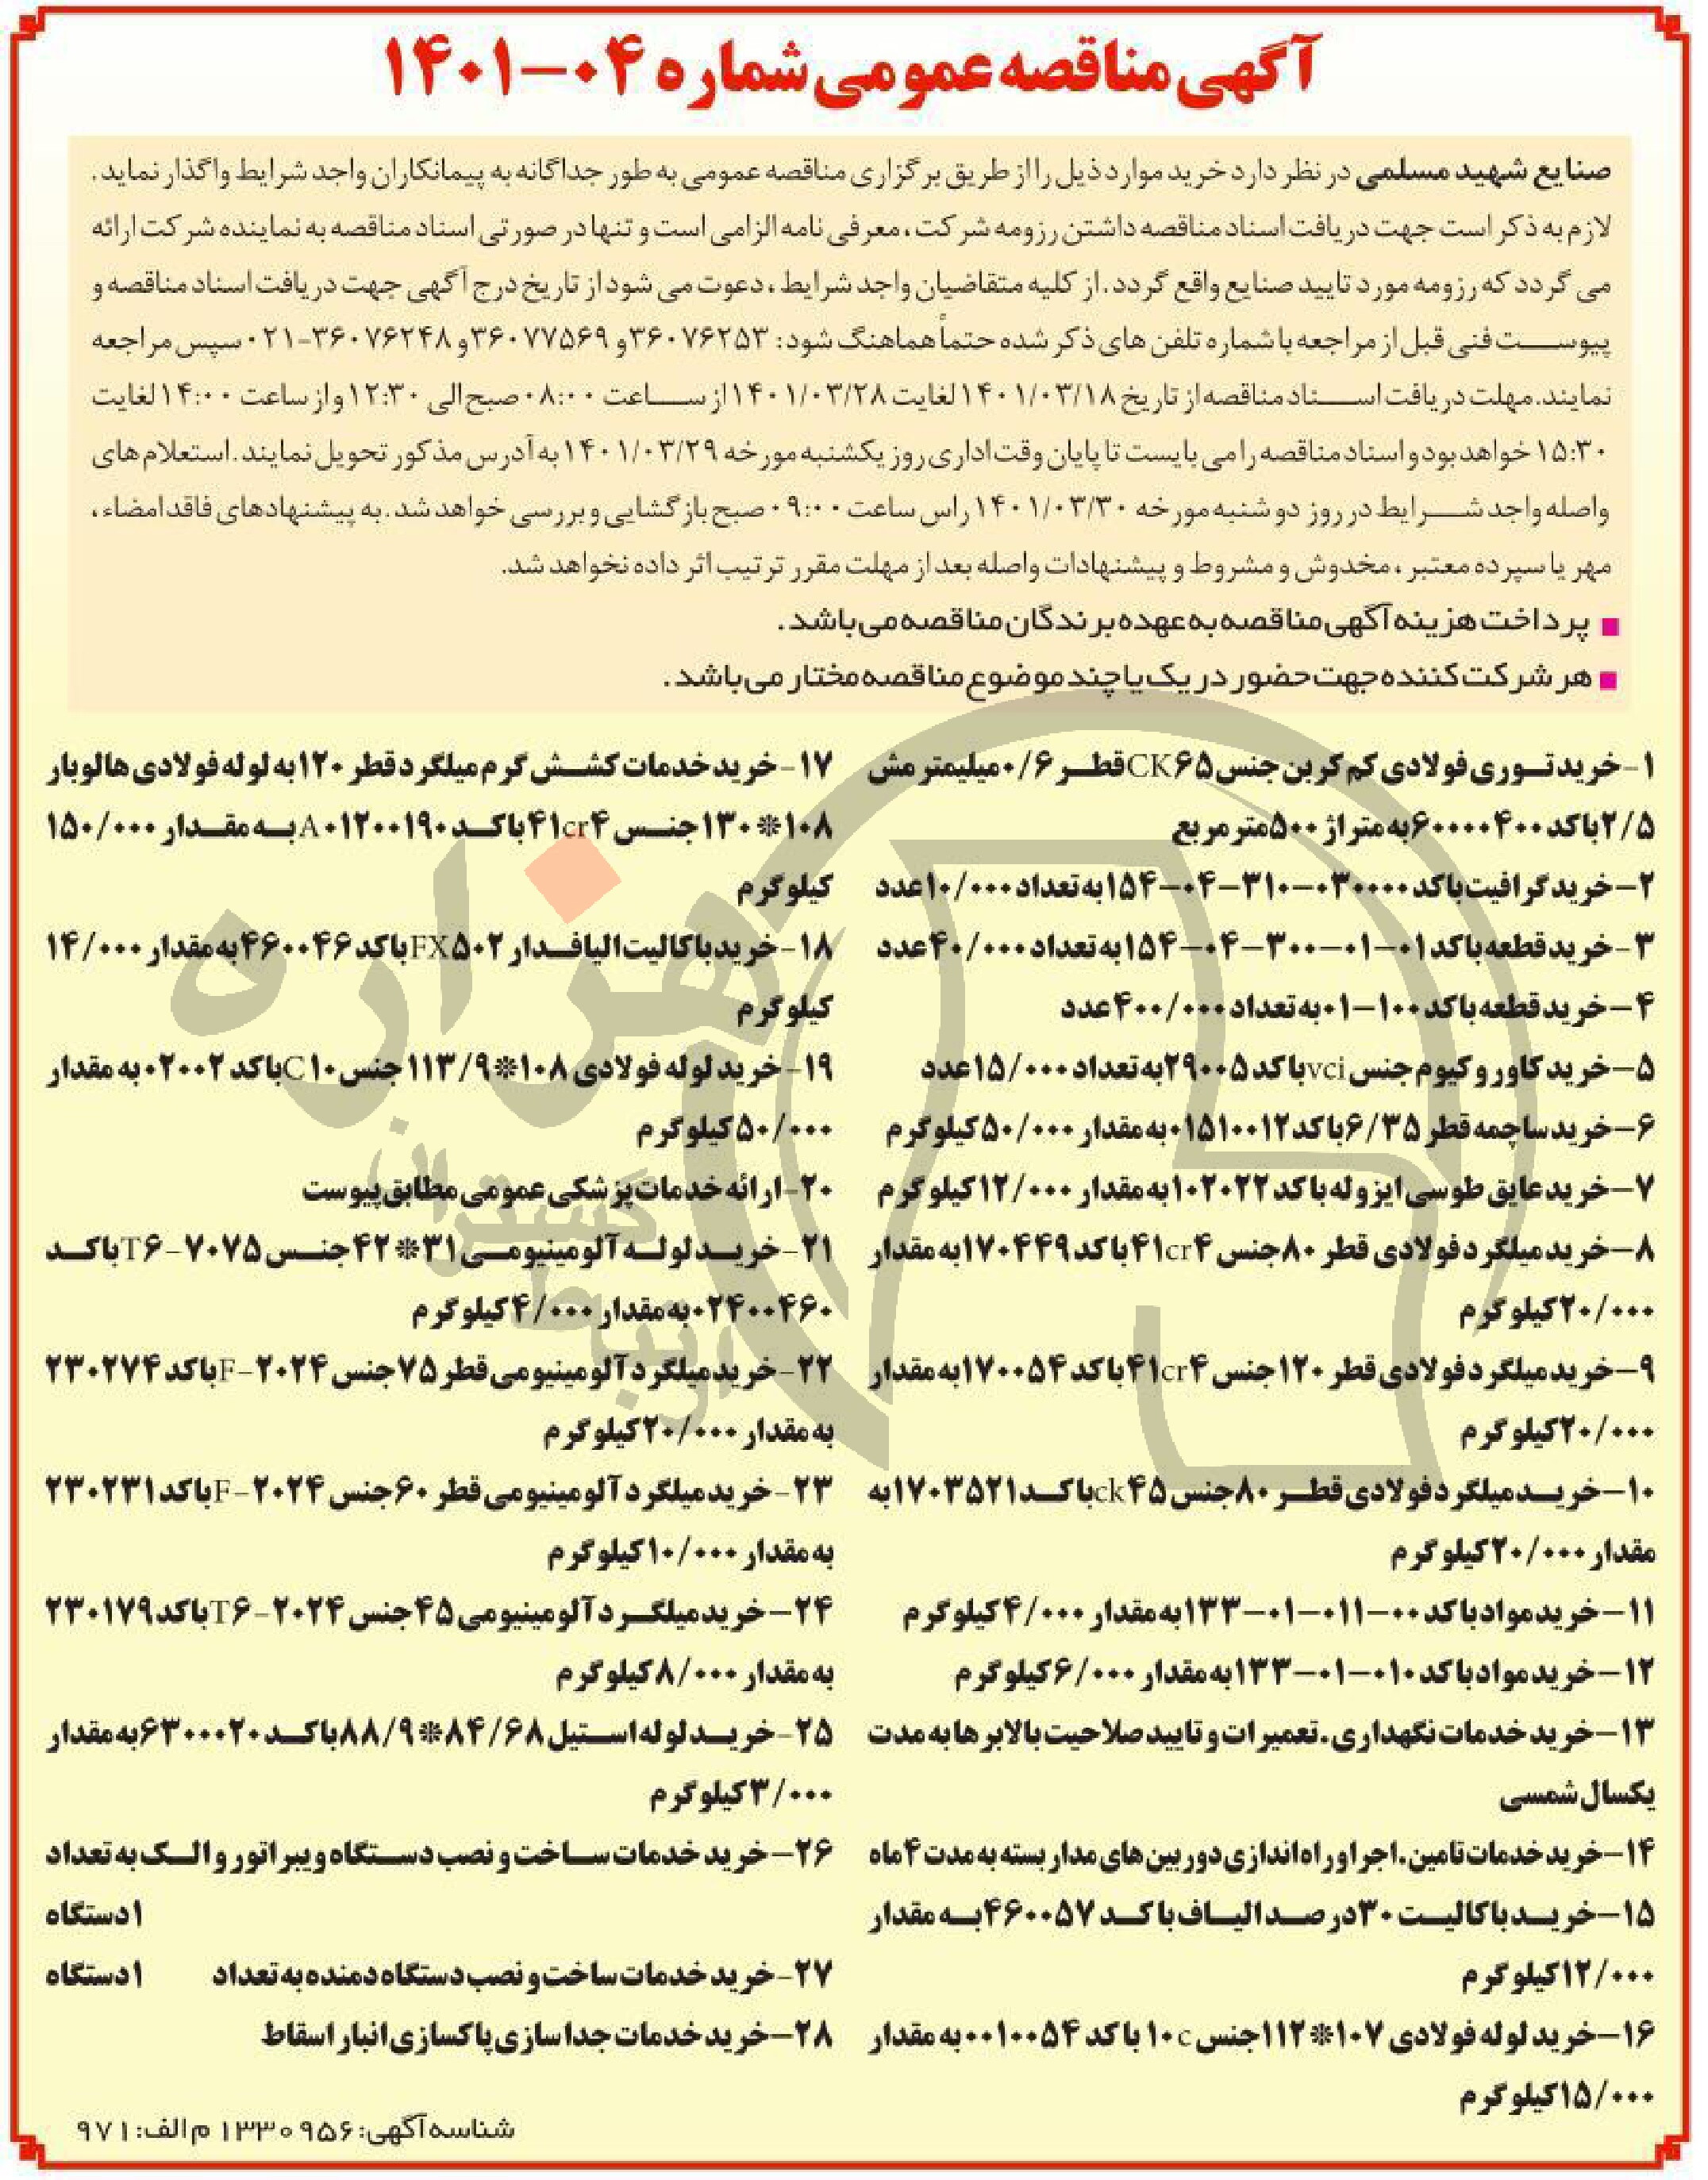 آگهی مناقصه عمومی شماره ۰۴-۱۴۰۱
صنایع شهید مسلمی در نظر دارد خرید موارد ذیل را از طریق برگزاری مناقصه عمومی به طور جداگانه به پیمانکاران واجد شرایط واگذار نماید.
لازم به ذکر است جهت دریافت اسناد مناقصه داشتن رزومه شرکت، معرفی نامه الزامی است و تنها در صورتی اسناد مناقصه به نماینده شرکت ارائه
می گردد که رزومه مورد تایید صنایع واقع گردد. از کلیه متقاضیان واجد شرایط، دعوت می شود از تاریخ درج آگهی جهت دریافت اسناد مناقصه و
پیوست فنی قبل از مراجعه با شماره تلفن های ذکر شده حتماً هماهنگ شود: ۳۶۰۷۶۲۵۳ و ۳۶۰۷۷۵۶۹ و ۳۶۰۷۶۲۴۸-۰۲۱ سپس مراجعه
نمایند. مهلت دریافت اسناد مناقصه از تاریخ ۱۴۰۱/۰۳/۱۸ لغایت ۱۴۰۱/۰۳/۲۸ از ساعت ۰۸:۰۰ صبح الی ۱۲:۳۰ و از ساعت ۱۴:۰۰ لغایت
۱۵:۳۰ خواهد بود و اسناد مناقصه را می بایست تا پایان وقت اداری روز یکشنبه مورخه ۱۴۰۱/۰۳/۲۹ به آدرس مذکور تحویل نمایند. استعلام های
واصله واجد شرایط در روز دو شنبه مورخه ۱۴۰۱/۰۳/۳۰ راس ساعت ۰۹:۰۰ صبح بازگشایی و بررسی خواهد شد. به پیشنهادهای فاقد امضاء،
مهر یا سپرده معتبر، مخدوش و مشروط و پیشنهادات واصله بعد از مهلت مقرر ترتیب اثر داده نخواهد شد.
■ پرداخت هزینه آگهی مناقصه به عهده برندگان مناقصه می باشد.
■ هر شرکت کننده جهت حضور در یک یا چند موضوع مناقصه مختار می باشد.
۱-خرید توری فولادی کم کربن جنس CK۶۵ قطر ۰/۶ میلیمتر مش
۲/۵ با کد ۶۰۰۰۰۴۰۰ به متراژ ۵۰۰ متر مربع
۲-خرید گرافیت با کد ۰۳۰۰۰۰-۳۱۰-۰۴-۱۵۴ به تعداد ۱۰/۰۰۰ عدد
۳-خرید قطعه با کد ۰۱-۰۱-۳۰۰-۰۴-۱۵۴ به تعداد ۴۰/۰۰۰ عدد
۴-خرید قطعه با کد ۱۰۰-۰۱ به تعداد ۴۰۰/۰۰۰ عدد
۵-خرید کاور وکیوم جنس vci با کد ۲۹۰۰۵ به تعداد ۱۵/۰۰۰ عدد
۶-خرید ساچمه قطر ۶/۳۵ با کد ۰۱۵۱۰۰۱۲ به مقدار ۵۰/۰۰۰ کیلوگرم
۷-خرید عایق طوسی ایزوله با کد ۱۰۲۰۲۲ به مقدار ۱۲/۰۰۰ کیلوگرم
۸-خرید میلگرد فولادی قطر ۸۰ جنس ۴۱cr۴ با کد ۱۷۰۴۴۹ به مقدار
۲۰/۰۰۰ کیلوگرم
۹-خرید میلگرد فولادی قطر ۱۲۰ جنس ۴۱cr۴ با کد ۱۷۰۰۵۴ به مقدار
۲۰/۰۰۰ کیلوگرم
۱۰-خرید میلگرد فولادی قطر ۸۰ جنس ck۴۵ با کد ۱۷۰۳۵۲۱ به
مقدار ۲۰/۰۰۰ کیلوگرم
۱۱-خرید مواد با کد ۰۰-۰۱۱-۰۱-۱۳۳ به مقدار ۴/۰۰۰ کیلوگرم
۱۲-خرید مواد با کد ۰۱۰-۰۱-۱۳۳ به مقدار ۶/۰۰۰ کیلوگرم
۱۳-خرید خدمات نگهداری، تعمیرات و تایید صلاحیت بالابرها به مدت
یکسال شمسی
۱۴-خرید خدمات تامین، اجرا و راه اندازی دوربین های مدار بسته به مدت ۴ ماه
۱۵-خرید باکالیت ۳۰ درصد الیاف با کد ۴۶۰۰۵۷ به مقدار
۱۲/۰۰۰ کیلوگرم
۱۶-خرید لوله فولادی ۱۰۷*۱۱۲ جنس ۱۰c با کد ۰۰۱۰۰۵۴ به مقدار
۱۵/۰۰۰ کیلوگرم
۱۷-خرید خدمات کشش گرم میلگرد قطر ۱۲۰ به لوله فولادی هالوبار
۱۰۸*۱۳۰ جنس ۴۱cr۴ با کد A۰۱۲۰۰۱۹۰ به مقدار ۱۵۰/۰۰۰
کیلوگرم
۱۸-خرید باکالیت الیافدار FX۵۰۲ با کد ۴۶۰۰۴۶ به مقدار ۱۴/۰۰۰
کیلوگرم
۱۹-خرید لوله فولادی ۱۰۸*۱۱۳/۹ جنس C۱۰ با کد ۰۲۰۰۲ به مقدار
۵۰/۰۰۰ کیلوگرم
۲۰-ارائه خدمات پزشکی عمومی مطابق پیوست
۲۱-خرید لوله آلومینیومی ۳۱*۴۲ جنس ۷۰۷۵-T۶ با کد
۰۲۴۰۰۴۶۰ به مقدار ۴/۰۰۰ کیلوگرم
۲۲-خرید میلگرد آلومینیومی قطر ۷۵ جنس ۲۰۲۴-F با کد ۲۳۰۲۷۴
به مقدار ۲۰/۰۰۰ کیلوگرم
۲۳-خرید میلگرد آلومینیومی قطر ۶۰ جنس ۲۰۲۴-F با کد ۲۳۰۲۳۱
به مقدار ۱۰/۰۰۰ کیلوگرم
۲۴-خرید میلگرد آلومینیومی ۴۵ جنس ۲۰۲۴-T۶ با کد ۲۳۰۱۷۹
به مقدار ۸/۰۰۰ کیلوگرم
۲۵-خرید لوله استیل ۸۴/۶۸*۸۸/۹ با کد ۶۳۰۰۰۲۰ به مقدار
۳/۰۰۰ کیلوگرم
۲۶-خرید خدمات ساخت و نصب دستگاه ویبراتور و الک به تعداد
۱ دستگاه
۲۷-خرید خدمات ساخت و نصب دستگاه دمنده به تعداد ۱ دستگاه
۲۸-خرید خدمات جداسازی پاکسازی انبار اسقاط
شناسه آگهی: ۱۳۳۰۹۵۶ م الف: ۹۷۱
هزاره